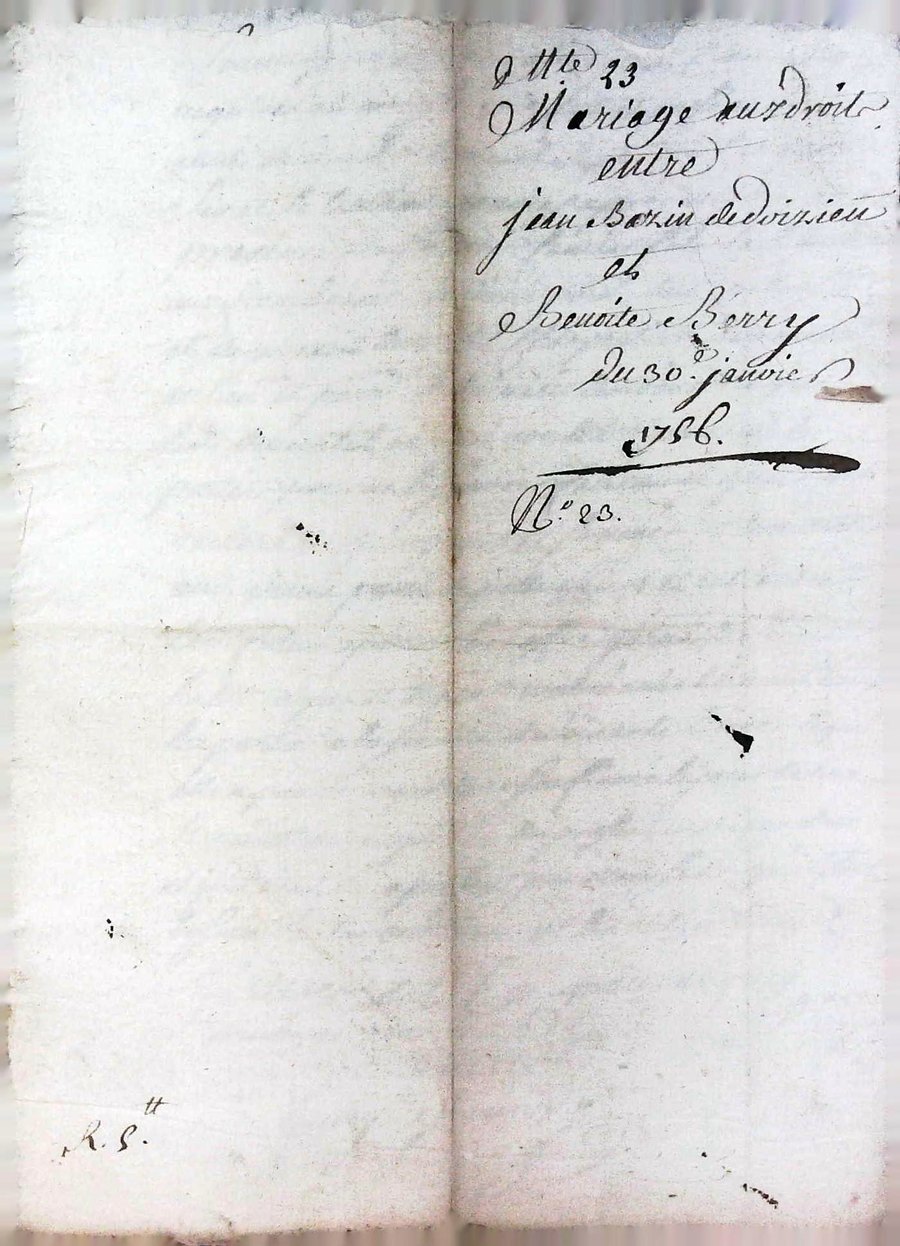 Mariage aux droits
entre
jean Bazin de doizieu
et
Benoite Berry
du 30.e janvier
1756.
N.o 23.
R. 5.tt